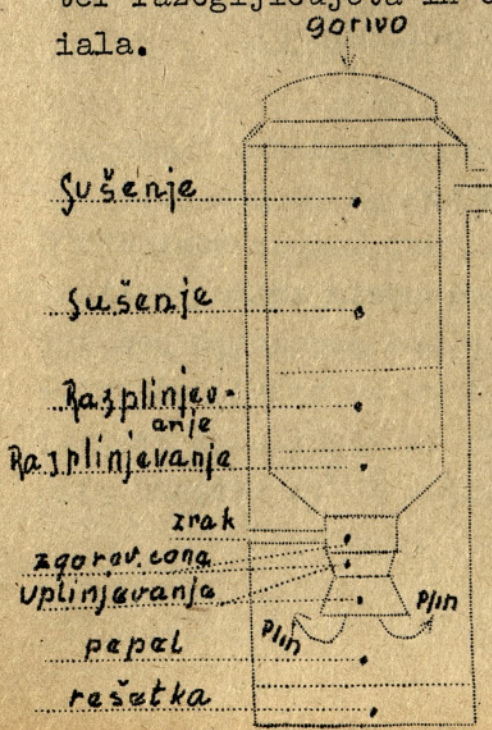 iala.
gorivo
Sušenje
Sušenje
Razplinjev-
anje
Razplinjevanje
zrak
zgorev. cona
uplinjevanje
plin
plin
pepel
rešetka